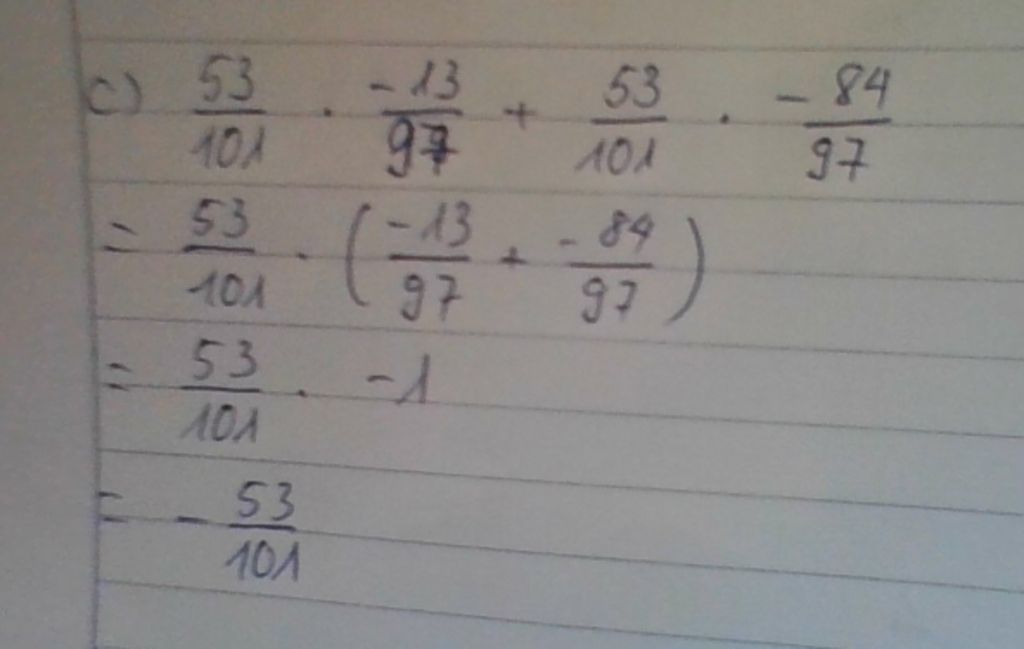 c) 53/101 · -13/97 + 53/101 · -84/97
= 53/101 · (-13/97 + -84/97)
= 53/101 · -1
= - 53/101